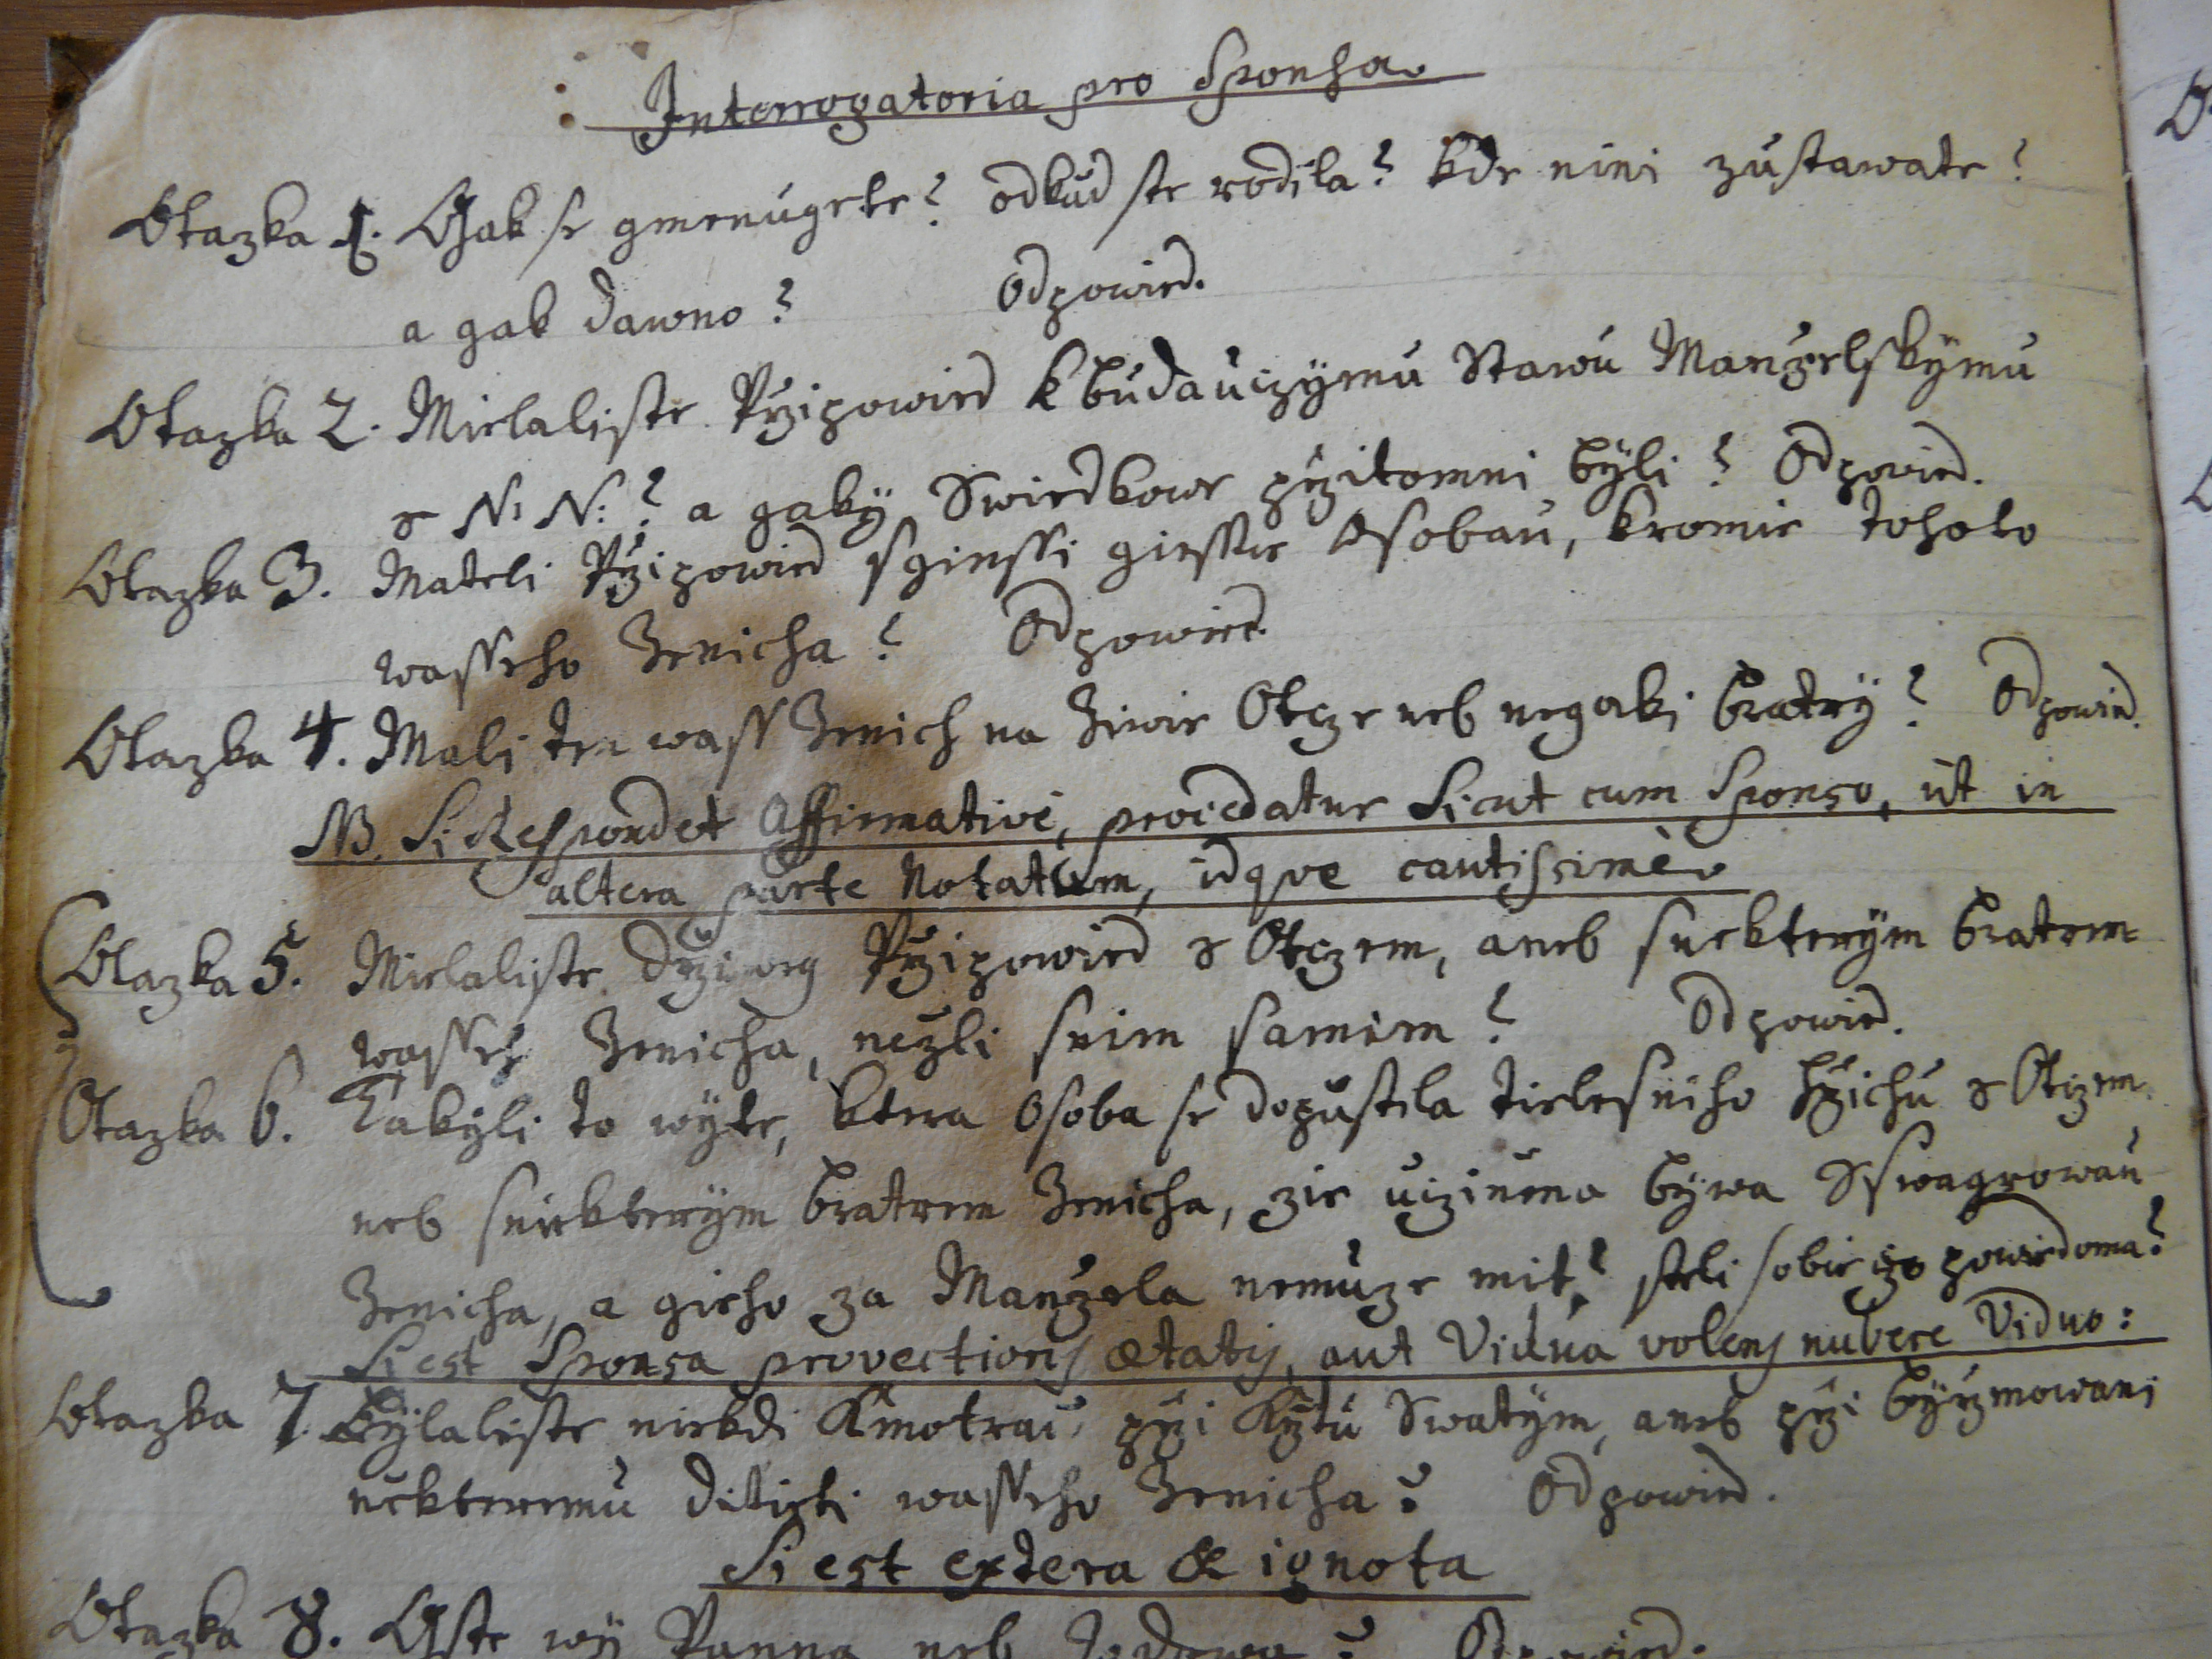 Interrogatoria pro Sponsa.
Otazka 1. Gak se gmenugete? odkud ste rodila? kde nini zustawate?
a gak dawno? Odpowied.
Otazka 2. Mielaliste Pržipowied k budauczymu Stawu Manželskymu
z N: N:? a gaky Swiedkowe pržitomni byli? Odpowied.
Otazka 3. Mateli Pržipowied sginssi giessie Osobau, kromie tohoto
wasseho Ženicha? Odpowied.
Otazka 4. Mali ten wass Ženich na Žiwie Otcze neb negaki bratry? Odpowied.
NB. Si Respondet Affirmativè, procedatur Sicut cum Sponso, ut in
altera parte Notatum, idque cautissimè.
Otazka 5. Mielaliste držiweg Pržipowied z Otczem, aneb snekterym bratrem
Ženicha, nežli snim samim? Odpowied.
Otazka 6. Takyli to wyte, ktera Osoba se dopustila tielesniho hržichu z Otczem,
neb sniekterym bratrem Ženicha, zie uczinena bywa Sswagrowau
Ženicha, a gieho za Manžela nemuze mit? steli sobie powiedoma?
Si est Sponsa provectioris ætatis, aut Vidua volens nubere Viduo:
Otazka 7. Bylaliste niekdi Kmotrau prži Krztu Swatym, aneb prži biržmowani
nekteremu ditieti wasseho Ženicha? Odpowied.
Si est extera & ignota
Otazka 8. Gste wy Panna neb Odpowied.